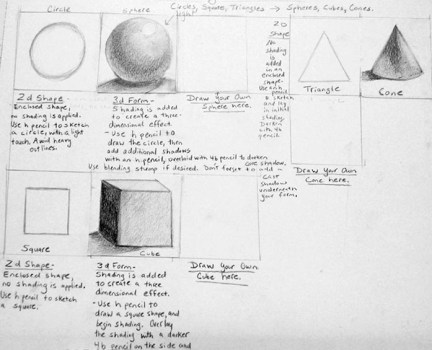 Circle
Sphere
light
Circles, Square, Triangles → Spheres, Cubes, Cones.
2d Shape-
Enclosed shape,
no shading is applied.
Use h pencil to sketch
a circle, with a light
touch. Avoid heavy
outlines.
3d Form-
Shading is added
to create a three
dimensional effect.
- Use h pencil to
draw the circle, then
add additional shadows
with an h pencil, overlaid with 4b pencil to darken
Use blending stump if desired. Dont forget to add
Draw Your Own
Sphere here.
2D
Shape
No
shading
is
added
in an
enclosed
shape.
Use
pencil
sketch
and
initial
shading.
Darken
with 4b
pencil
one shadow.
- Cast
Shadows
underneath
your form.
Triangle
Cone
Draw Your Own
Cone here.
Square
Cube
2d Shape-
Enclosed shape,
no shading is applied.
Use h pencil to sketch
a square.
3d Form-
Shading is added
to create a three
dimensional effect.
- Use h pencil to
draw a square shape, and
begin shading. Overlay
the shading with a darker
4b pencil on the side and
Draw Your Own
Cube here.